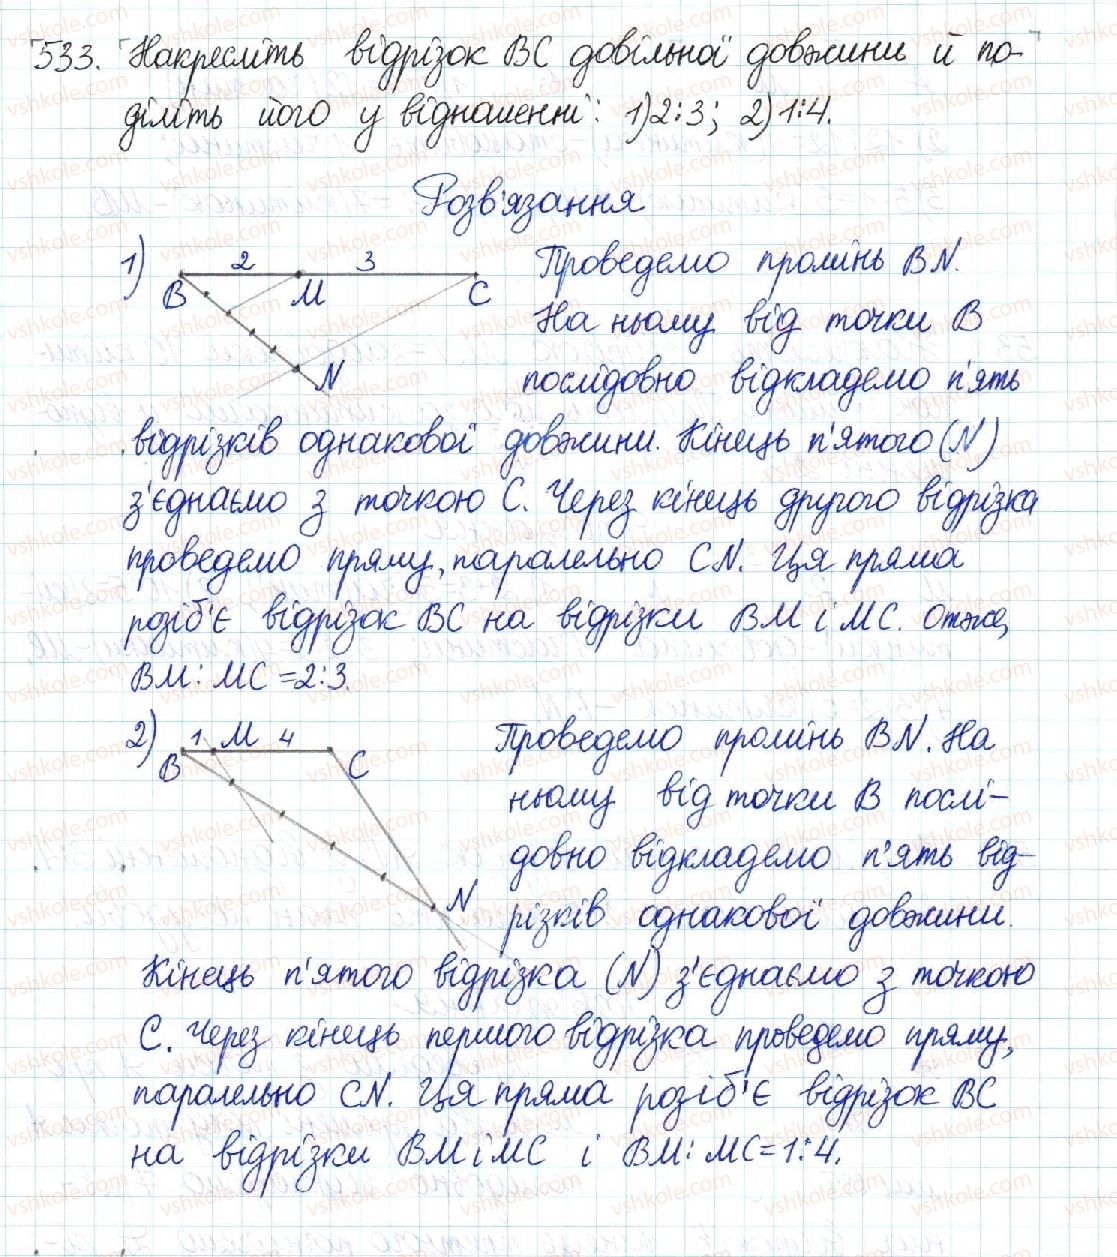 533. Накресліть відрізок BC довільної довжини й по-
діліть його у відношенні: 1) 2:3; 2) 1:4.
Розв'язання
1)
2 3
B M C
N
Проведемо промінь BN.
На ньому від точки B
послідовно відкладемо п'ять
відрізків однакової довжини. Кінець п'ятого (N)
з'єднаємо з точкою C. Через кінець другого відрізка
проведемо пряму, паралельно CN. Ця пряма
розіб'є відрізок BC на відрізки BM і MC. Отже,
BM : MC = 2:3.
2)
B 1 M 4 C
N
Проведемо промінь BN. На
ньому від точки B послі-
довно відкладемо п'ять від-
різків однакової довжини.
Кінець п'ятого відрізка (N) з'єднаємо з точкою
C. Через кінець першого відрізка проведемо пряму,
паралельно CN. Ця пряма розіб'є відрізок BC
на відрізки BM і MC і BM : MC = 1:4.
vshkole.com